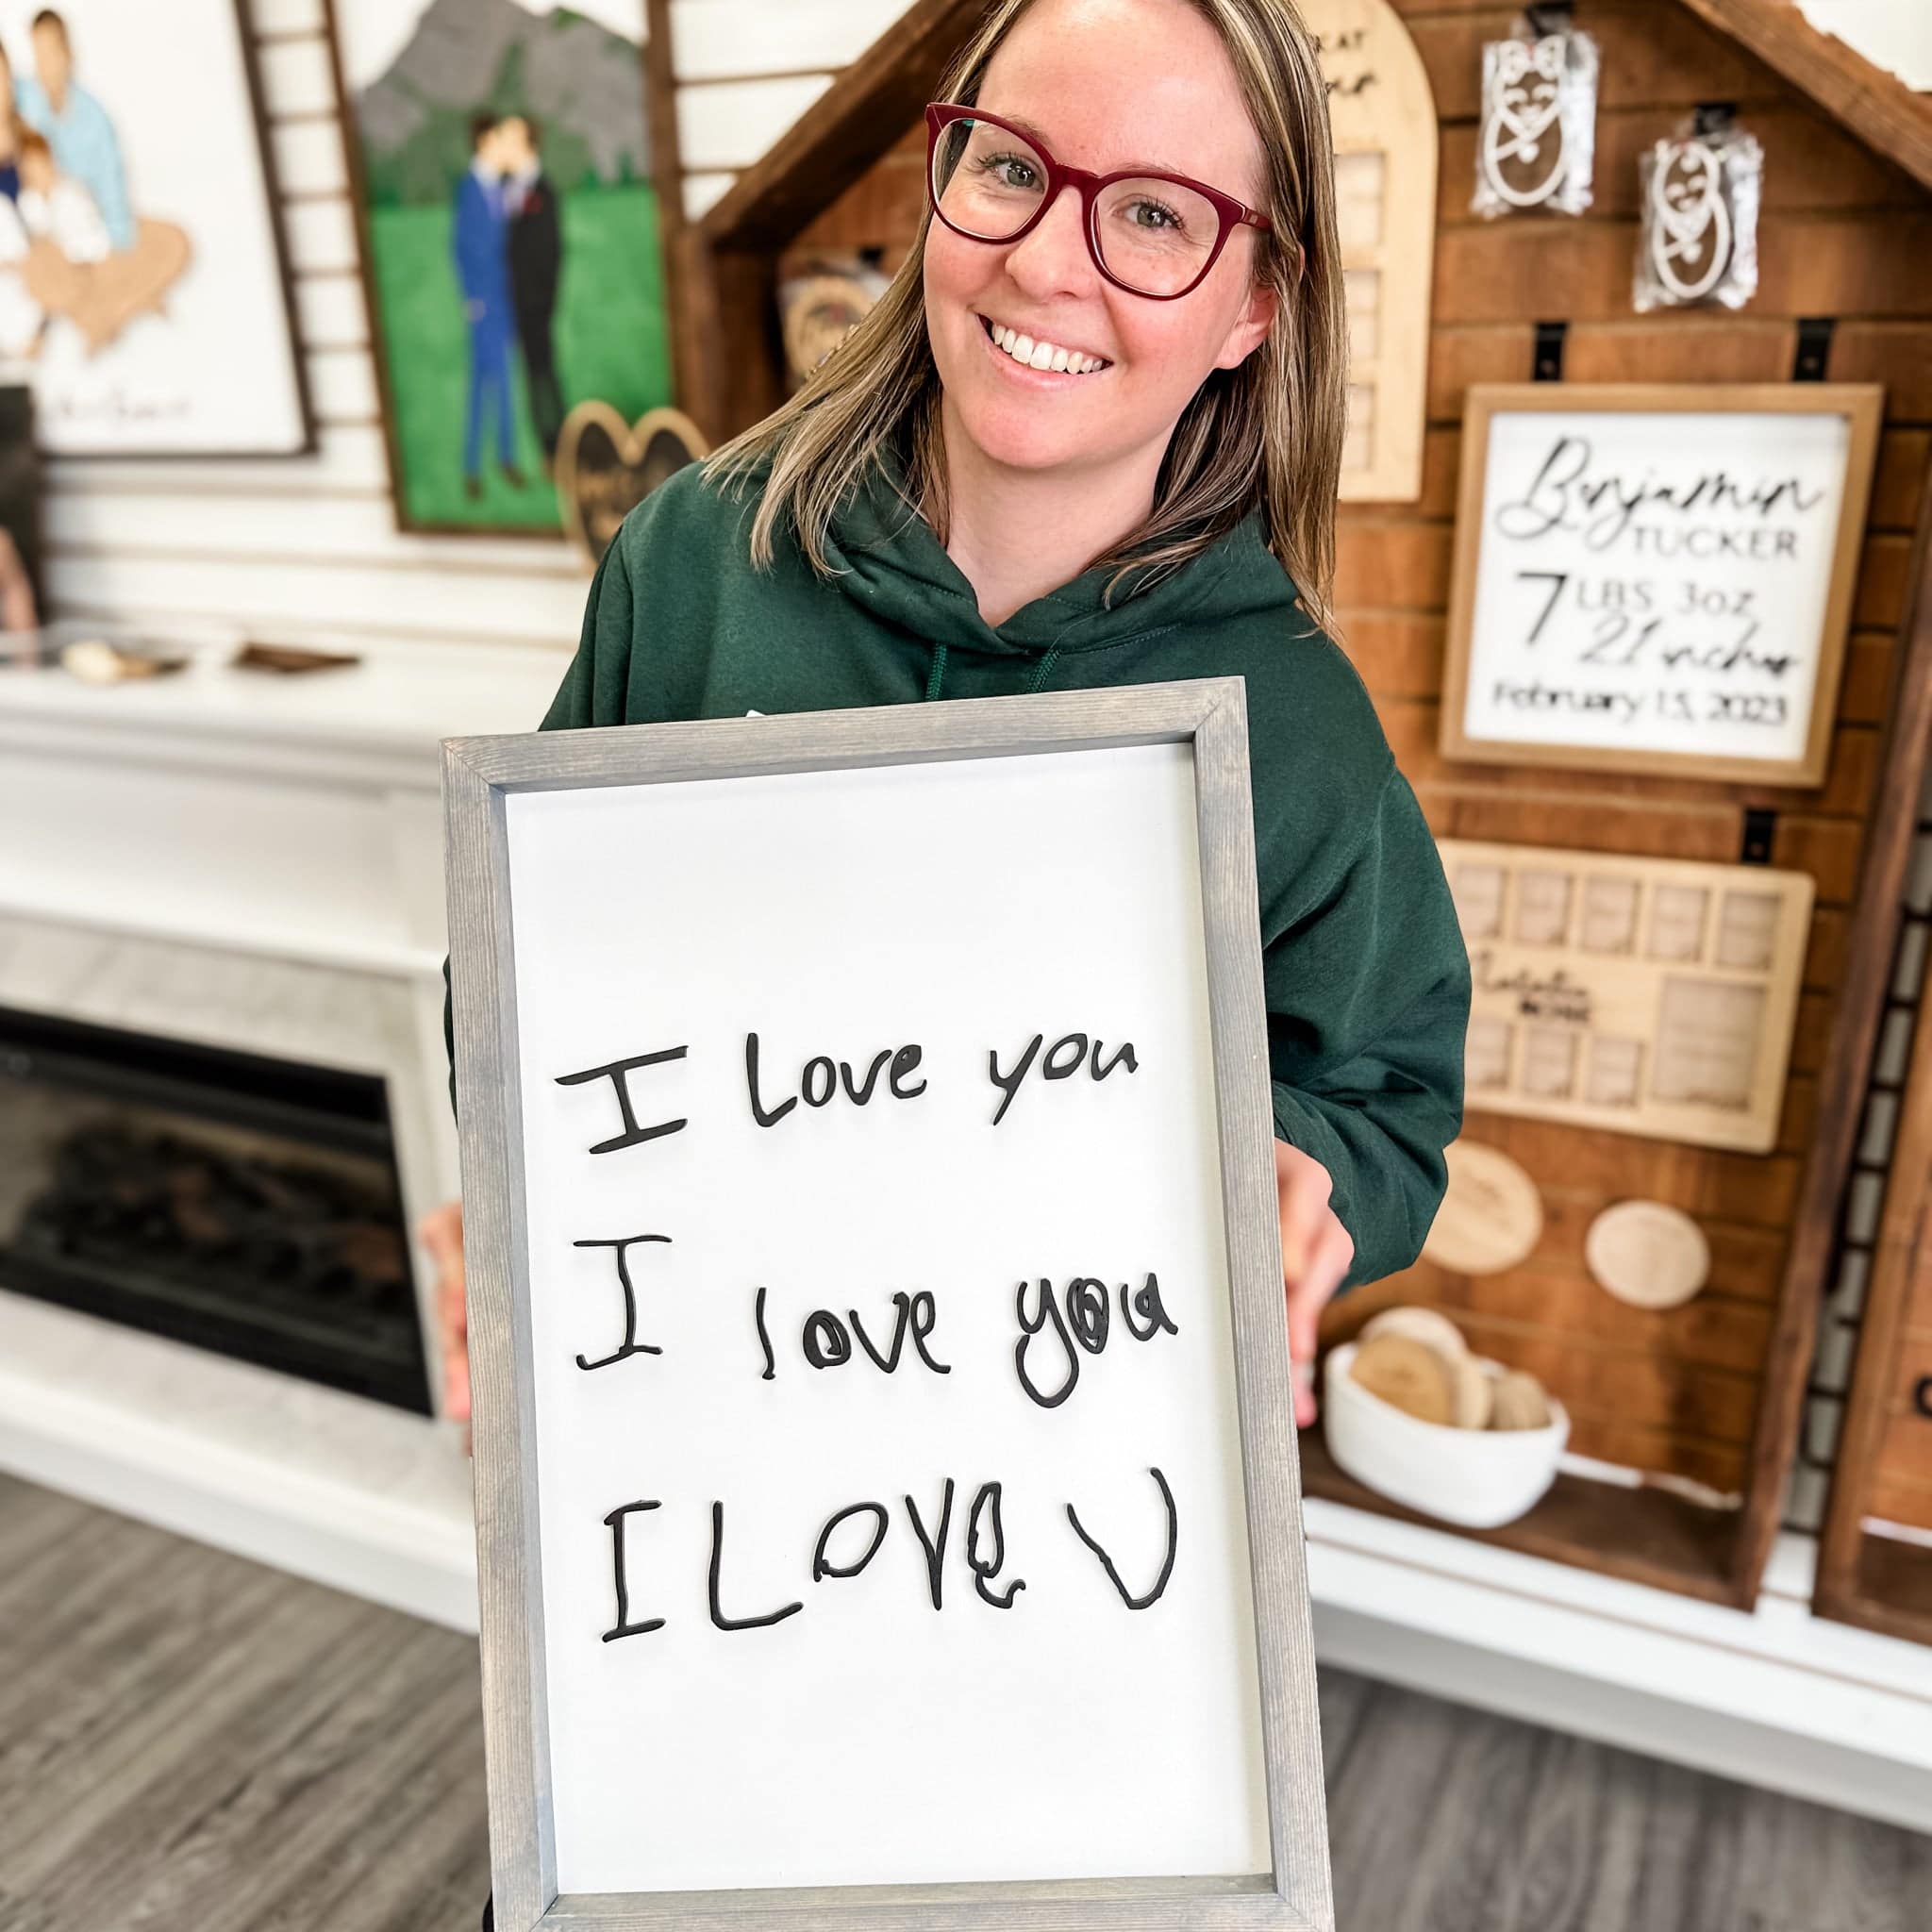 I Love you
I love you
I LOVe U
Benjamin
TUCKER
7 LBS 3oz
21 inches
February 15, 2023